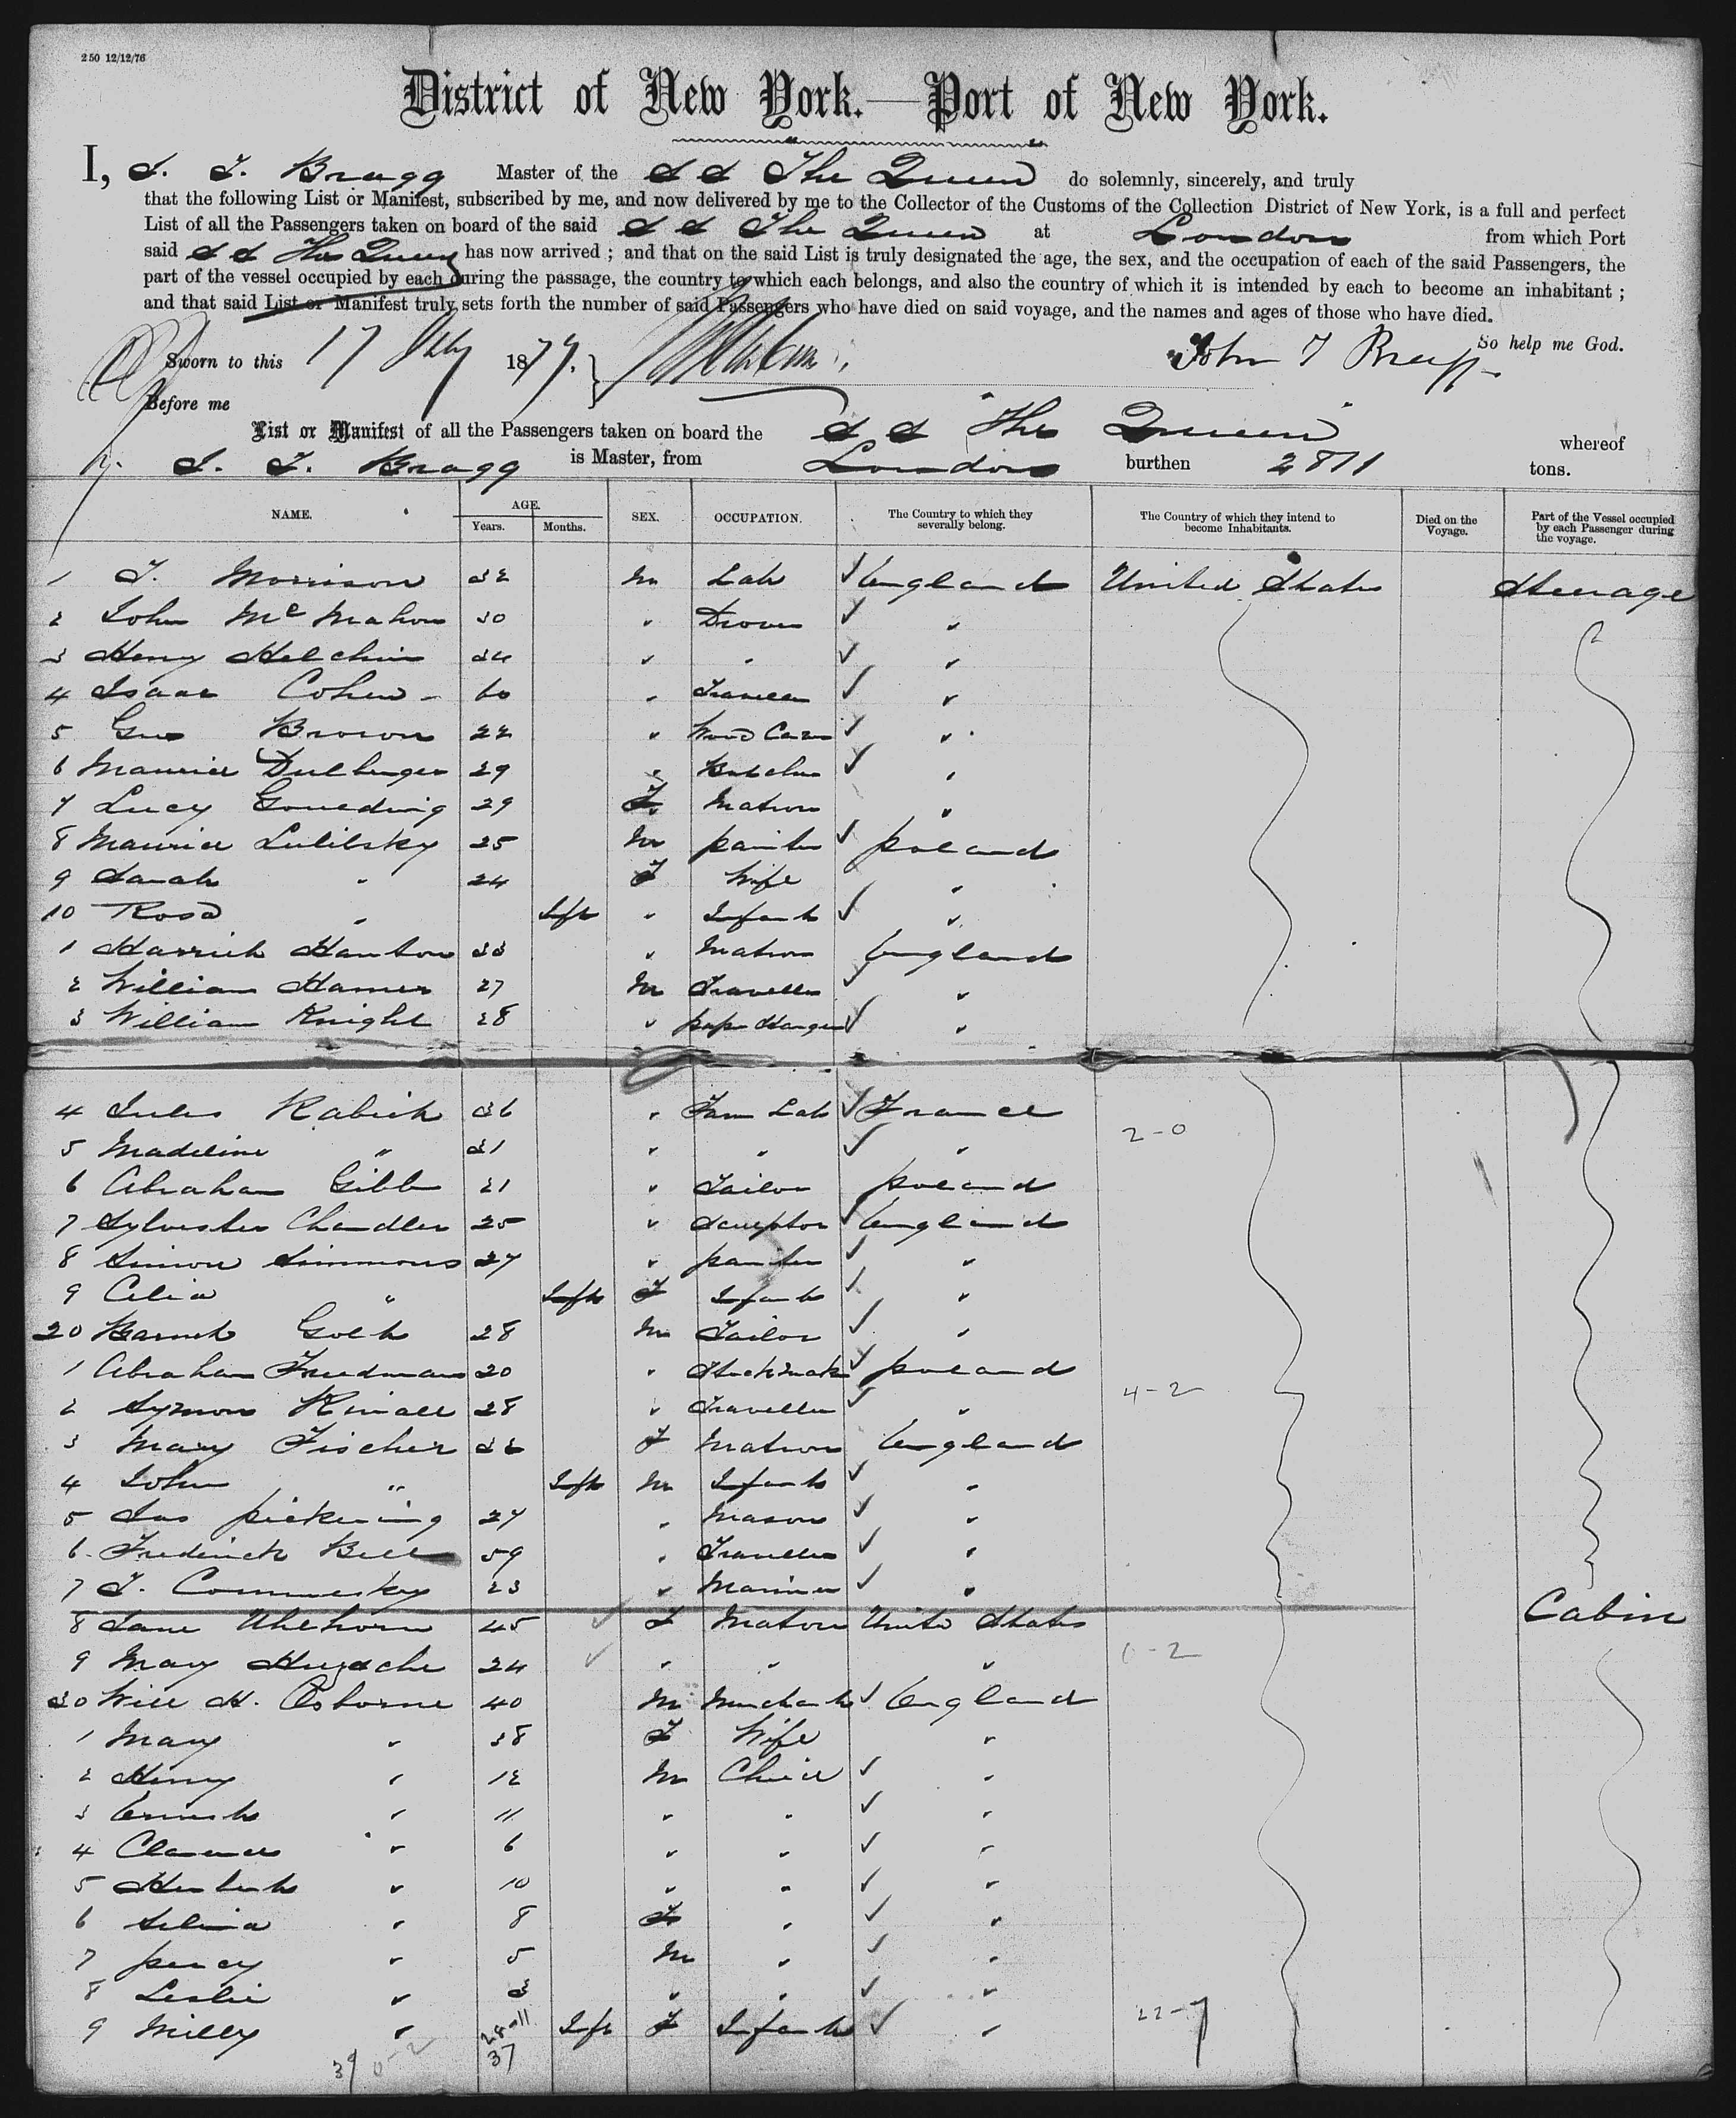 250 12/12/76
District of New York.—Port of New York.
I, J. T. Bragg Master of the S S The Queen do solemnly, sincerely, and truly
that the following List or Manifest, subscribed by me, and now delivered by me to the Collector of the Customs of the Collection District of New York, is a full and perfect
List of all the Passengers taken on board of the said S S The Queen at London from which Port
said S S The Queen has now arrived ; and that on the said List is truly designated the age, the sex, and the occupation of each of the said Passengers, the
part of the vessel occupied by each during the passage, the country to which each belongs, and also the country of which it is intended by each to become an inhabitant ;
and that said List or Manifest truly sets forth the number of said Passengers who have died on said voyage, and the names and ages of those who have died.
So help me God.
Sworn to this 17 July 1879. John T Bragg
Before me
List or Manifest of all the Passengers taken on board the S S The Queen whereof
J. T. Bragg is Master, from London burthen 2811 tons.
NAME. AGE. Years. Months. SEX. OCCUPATION. The Country to which they severally belong. The Country of which they intend to become Inhabitants. Died on the Voyage. Part of the Vessel occupied by each Passenger during the voyage.
1 T. Morrison 32 M Lab England United States Steerage
2 John McMahon 30 " Drover "
3 Henry 34 " " "
4 Isaac Cohen 60 " Traveller "
5 Geo Brown 22 " Wood Carver "
6 Maurice 29 " Butcher "
7 Lucy 29 F Matron "
8 Maurice 25 M painter poland
9 Sarah " 24 F Wife "
10 Rosa " Inft " Infant "
1 Harriet 33 " Matron England
2 William Hamer 27 M Traveller "
3 William Knight 28 " paper Hanger "
4 Jules Rabich 36 " Farm Lab France
5 Madeline " 31 " " "
6 Abraham Gibb 21 " Tailor poland
7 Sylvester Chandler 25 " Sculptor England
8 Simon Simmons 27 " painter "
9 Celia " Inft F Infant "
20 28 M Tailor "
1 Abraham Friedman 20 " Stickmaker poland
2 Symon 28 " Traveller "
3 Mary Fischer F Matron England
4 John " Inft M Infant "
5 Jas pickering 27 " Mason "
6 Frederick Bell 59 " Traveller "
7 T. 23 " Mariner "
8 Jane 45 F Matron United States Cabin
9 Mary 24 " " "
30 Will H. Osborne 40 M Merchant England
1 Mary " 38 F Wife "
2 Henry " 12 M Child "
3 Ernest " 11 " " "
4 Clarence " 6 " " "
5 Herbert " 10 " " "
6 Selina " 8 F " "
7 percy " 5 M " "
8 Leslie " 3 " " "
9 Milly " Inft F Infant "
2-0
4-2
1-2
22-7
28-11
37
39 0-2